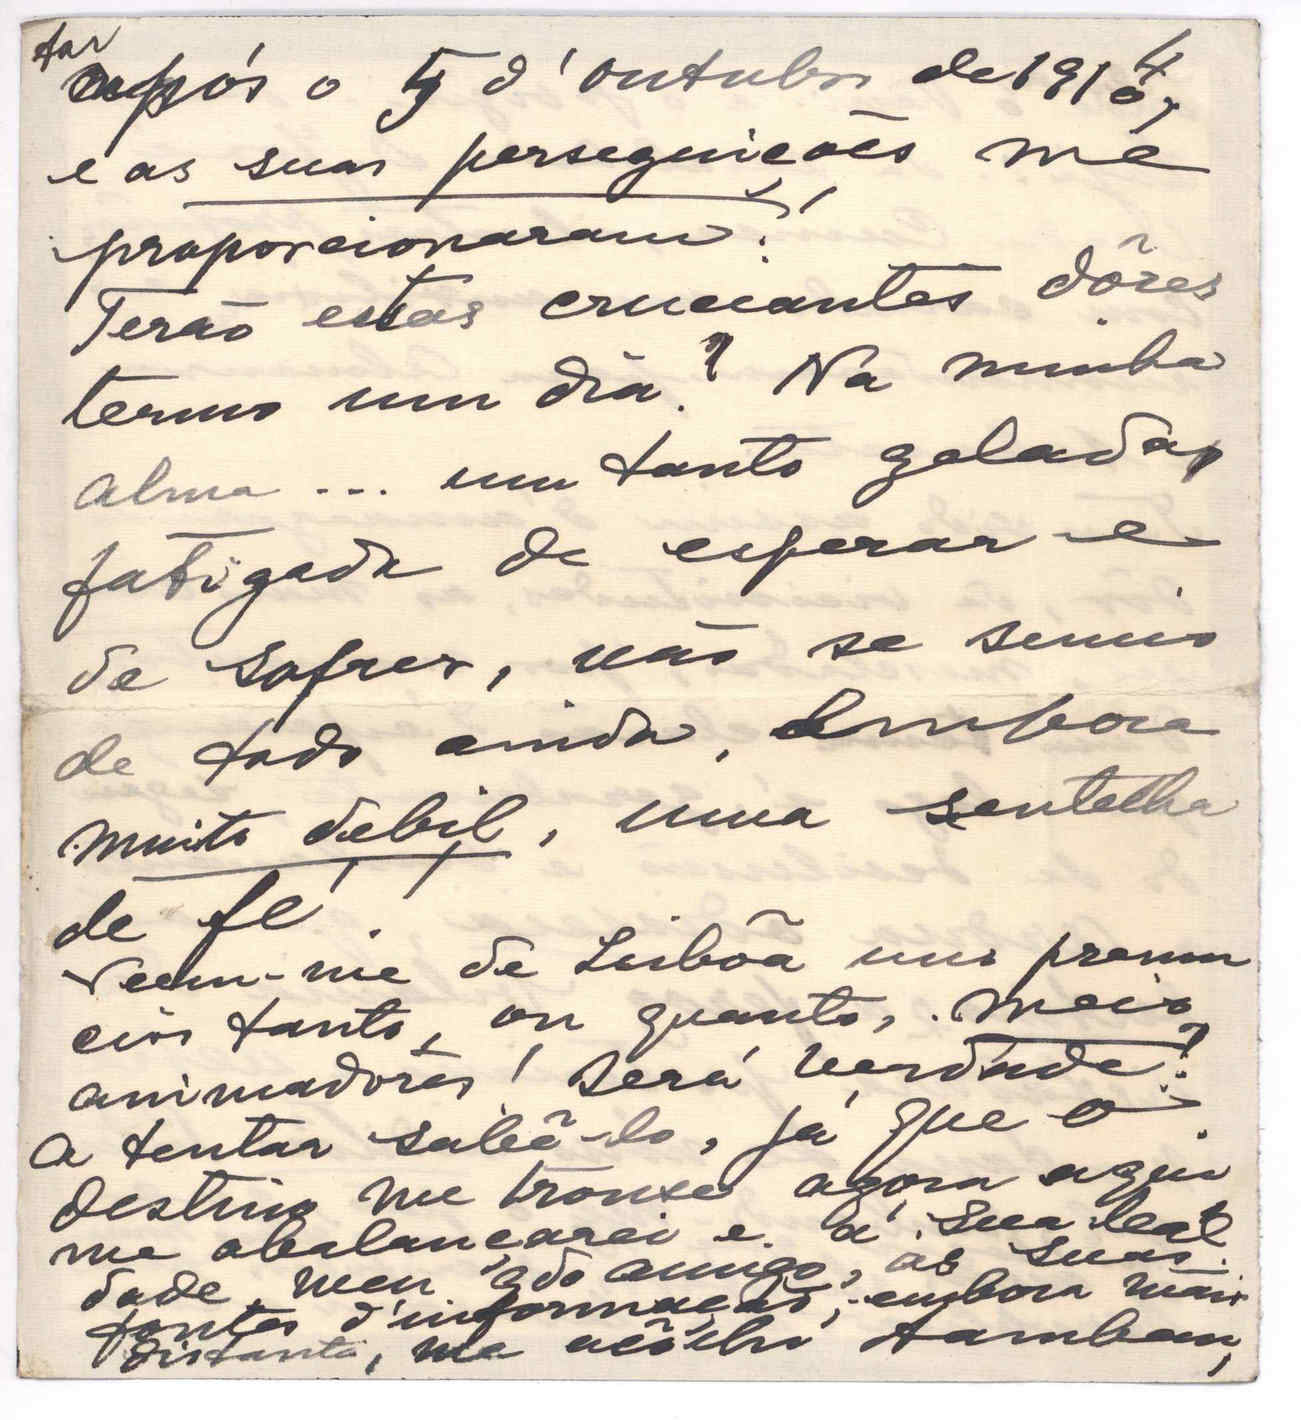 após o 5 d'outubro de 1910,
e as suas perseguições me
proporcionaram!
Terão estas cruciantes dôres
termo um dia? Na minha
alma ... um tanto gelada,
fatigada de esperar e
de sofrer, não se sumio
de todo ainda, embora
muito debil, uma sentelha
de fé.
Veem-me de Lisbôa uns prenun
cios tanto, ou quanto, mais
animadores! Será verdade?!
A tentar sabê-lo, já que o
destino me trouxe agora aqui
me abalançarei e á sua leal
dade, meu qdo amigo, as suas
fontes d'informação, embora mais
distante, me acôlho tambem,